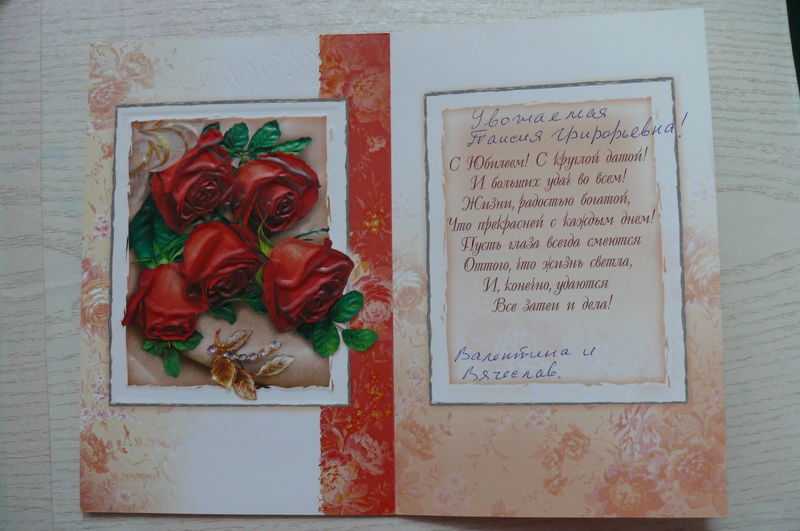 Уважаемая
Таисия Григорьевна!
С Юбилеем! С круглой датой!
И больших удач во всем!
Жизни, радостью богатой,
Что прекрасней с каждым днем!
Пусть глаза всегда смеются
Оттого, что жизнь светла,
И, конечно, удаются
Все затеи и дела!
Валентина и
Вячеслав.